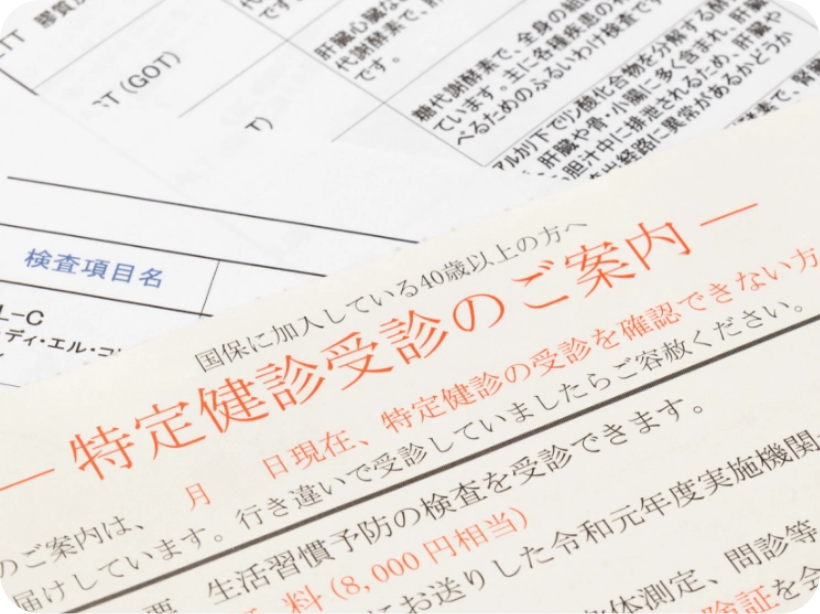 膠質
です。
T (GOT)
肝臓
代謝酵素で、
です。
T)
糖代謝酵素で、全身の組
ています。主に各種疾患の
べるためのふるいわけ検査です
アルカリ下でリン酸化合物を分解する酵
肝臓や骨・小腸に多く含まれ、肝臓
胆汁中に排泄されるため、肝臓や
出経路に異常があるかどうか
検査項目名
L-C
ディ・エル・コ
国保に加入している40歳以上の方へ
— 特定健診受診のご案内 —
月 日現在、特定健診の受診を確認できない方
のご案内は、
届けしています。行き違いで受診していましたらご容赦ください。
生活習慣予防の検査を受診できます。
料 (8,000円相当)
にお送りした令和元年度実施機関
体測定、問診等
険証を会